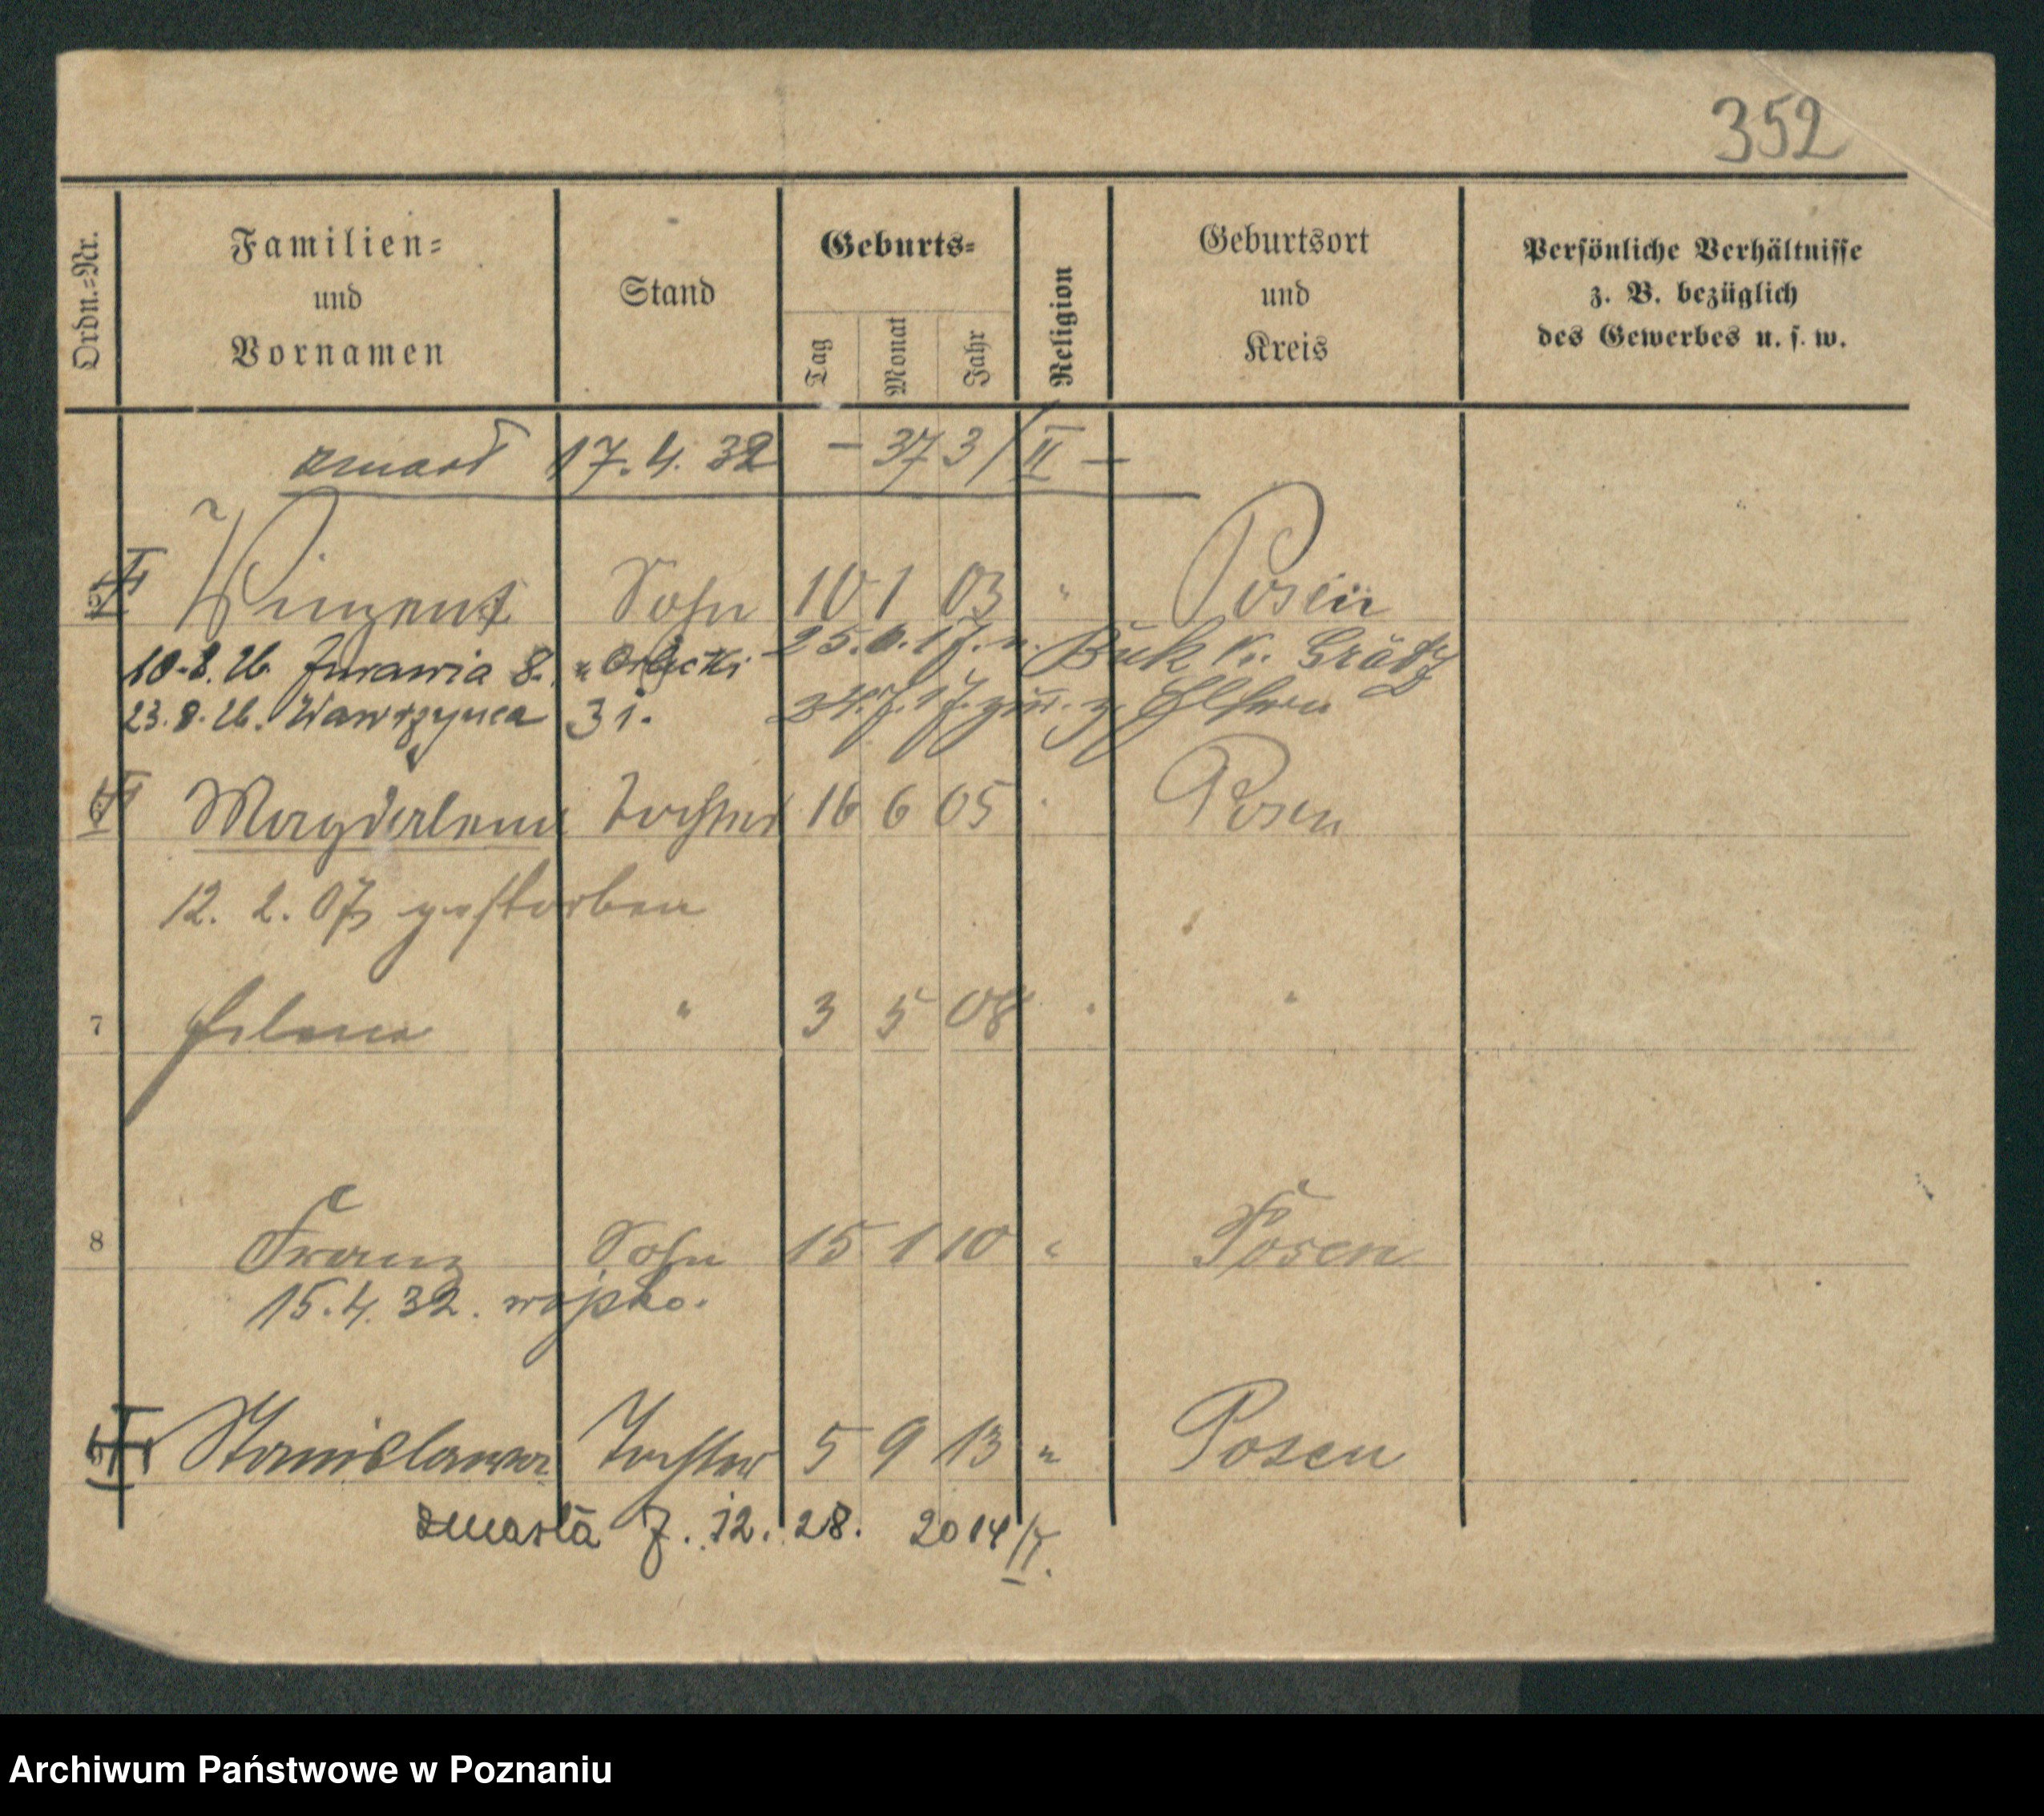 352
Ordn.-Nr. Familien- und Vornamen Stand Geburts- Tag Monat Jahr Religion Geburtsort und Kreis Persönliche Verhältnisse z. B. bezüglich des Gewerbes u. s. w.
zmarł 17.4.32 – 373/II –
Vinzent Sohn 10 1 03 " Posen
10.8.26. Żurawia 8. " 25.6.17. n. Buk Kr. Grätz
23.8.26. Wawrzyńca 31. 24.7.17. zur. z. Eltern
6 Magdalena Tochter 16 6 05 " Posen
12. 2. 07 gestorben
7 Helena " 3 5 08 " "
8 Franz Sohn 15 1 10 " Posen
15.4.32. wojsko.
9 Stanislawa Tochter 5 9 13 " Posen
zmarła 7. 12. 28. 2014/II.
Archiwum Państwowe w Poznaniu